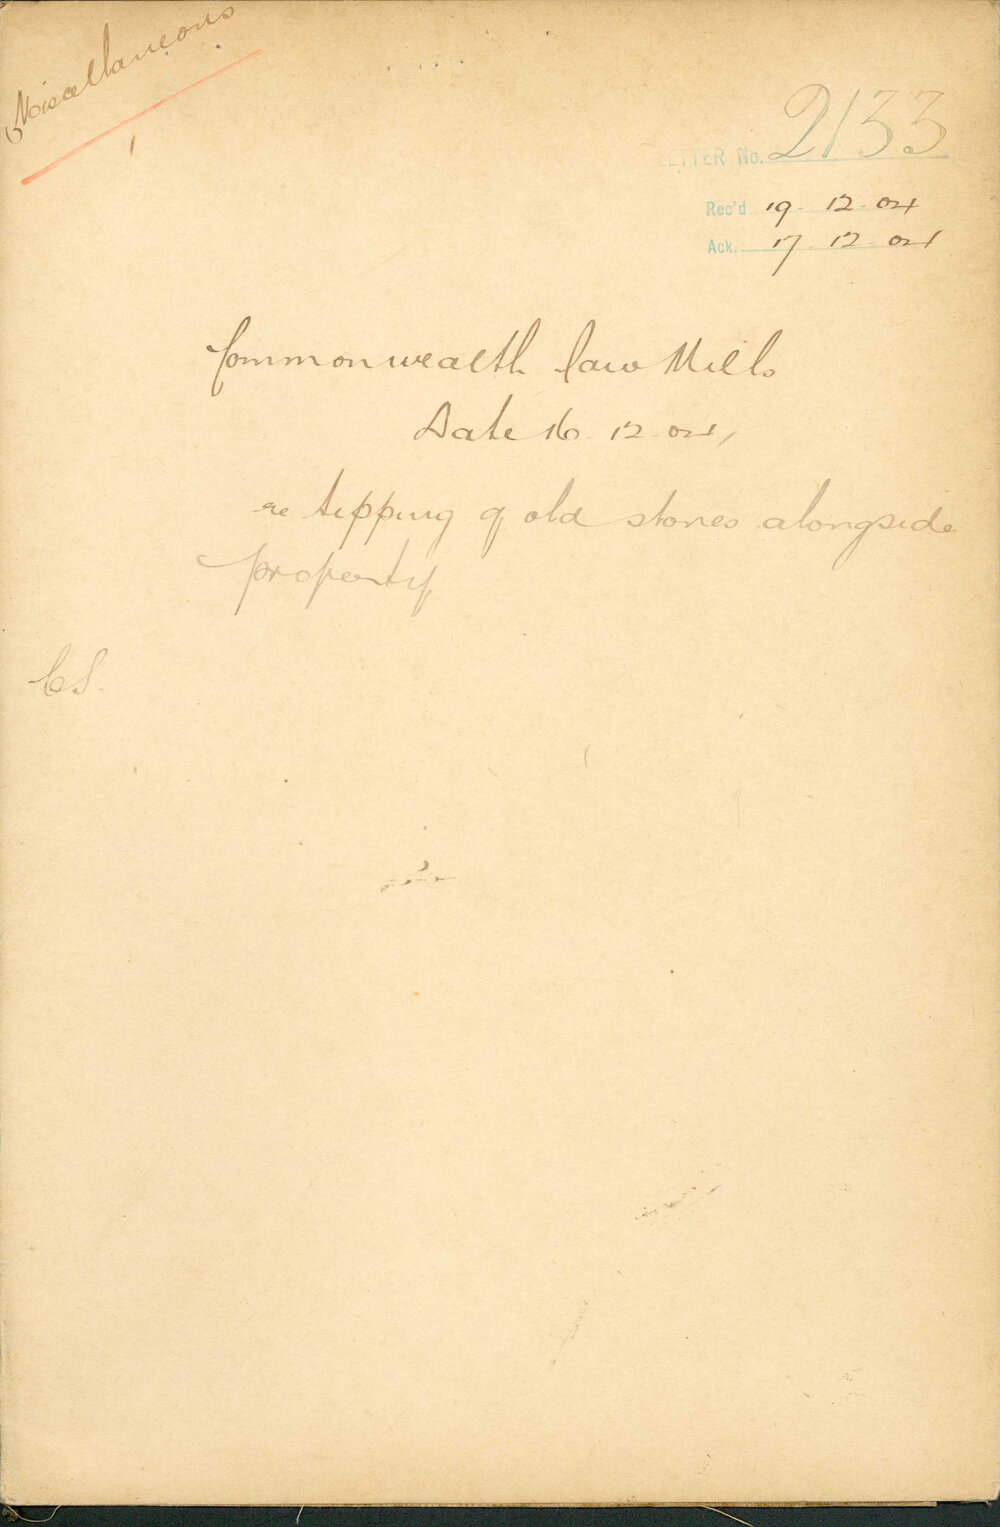 Miscellaneous
LETTER No. 2133
Rec'd 19-12-04
Ack. 17-12-04
Commonwealth Saw Mills
Date 16.12.04,
re tipping of old stones alongside
property
CS.